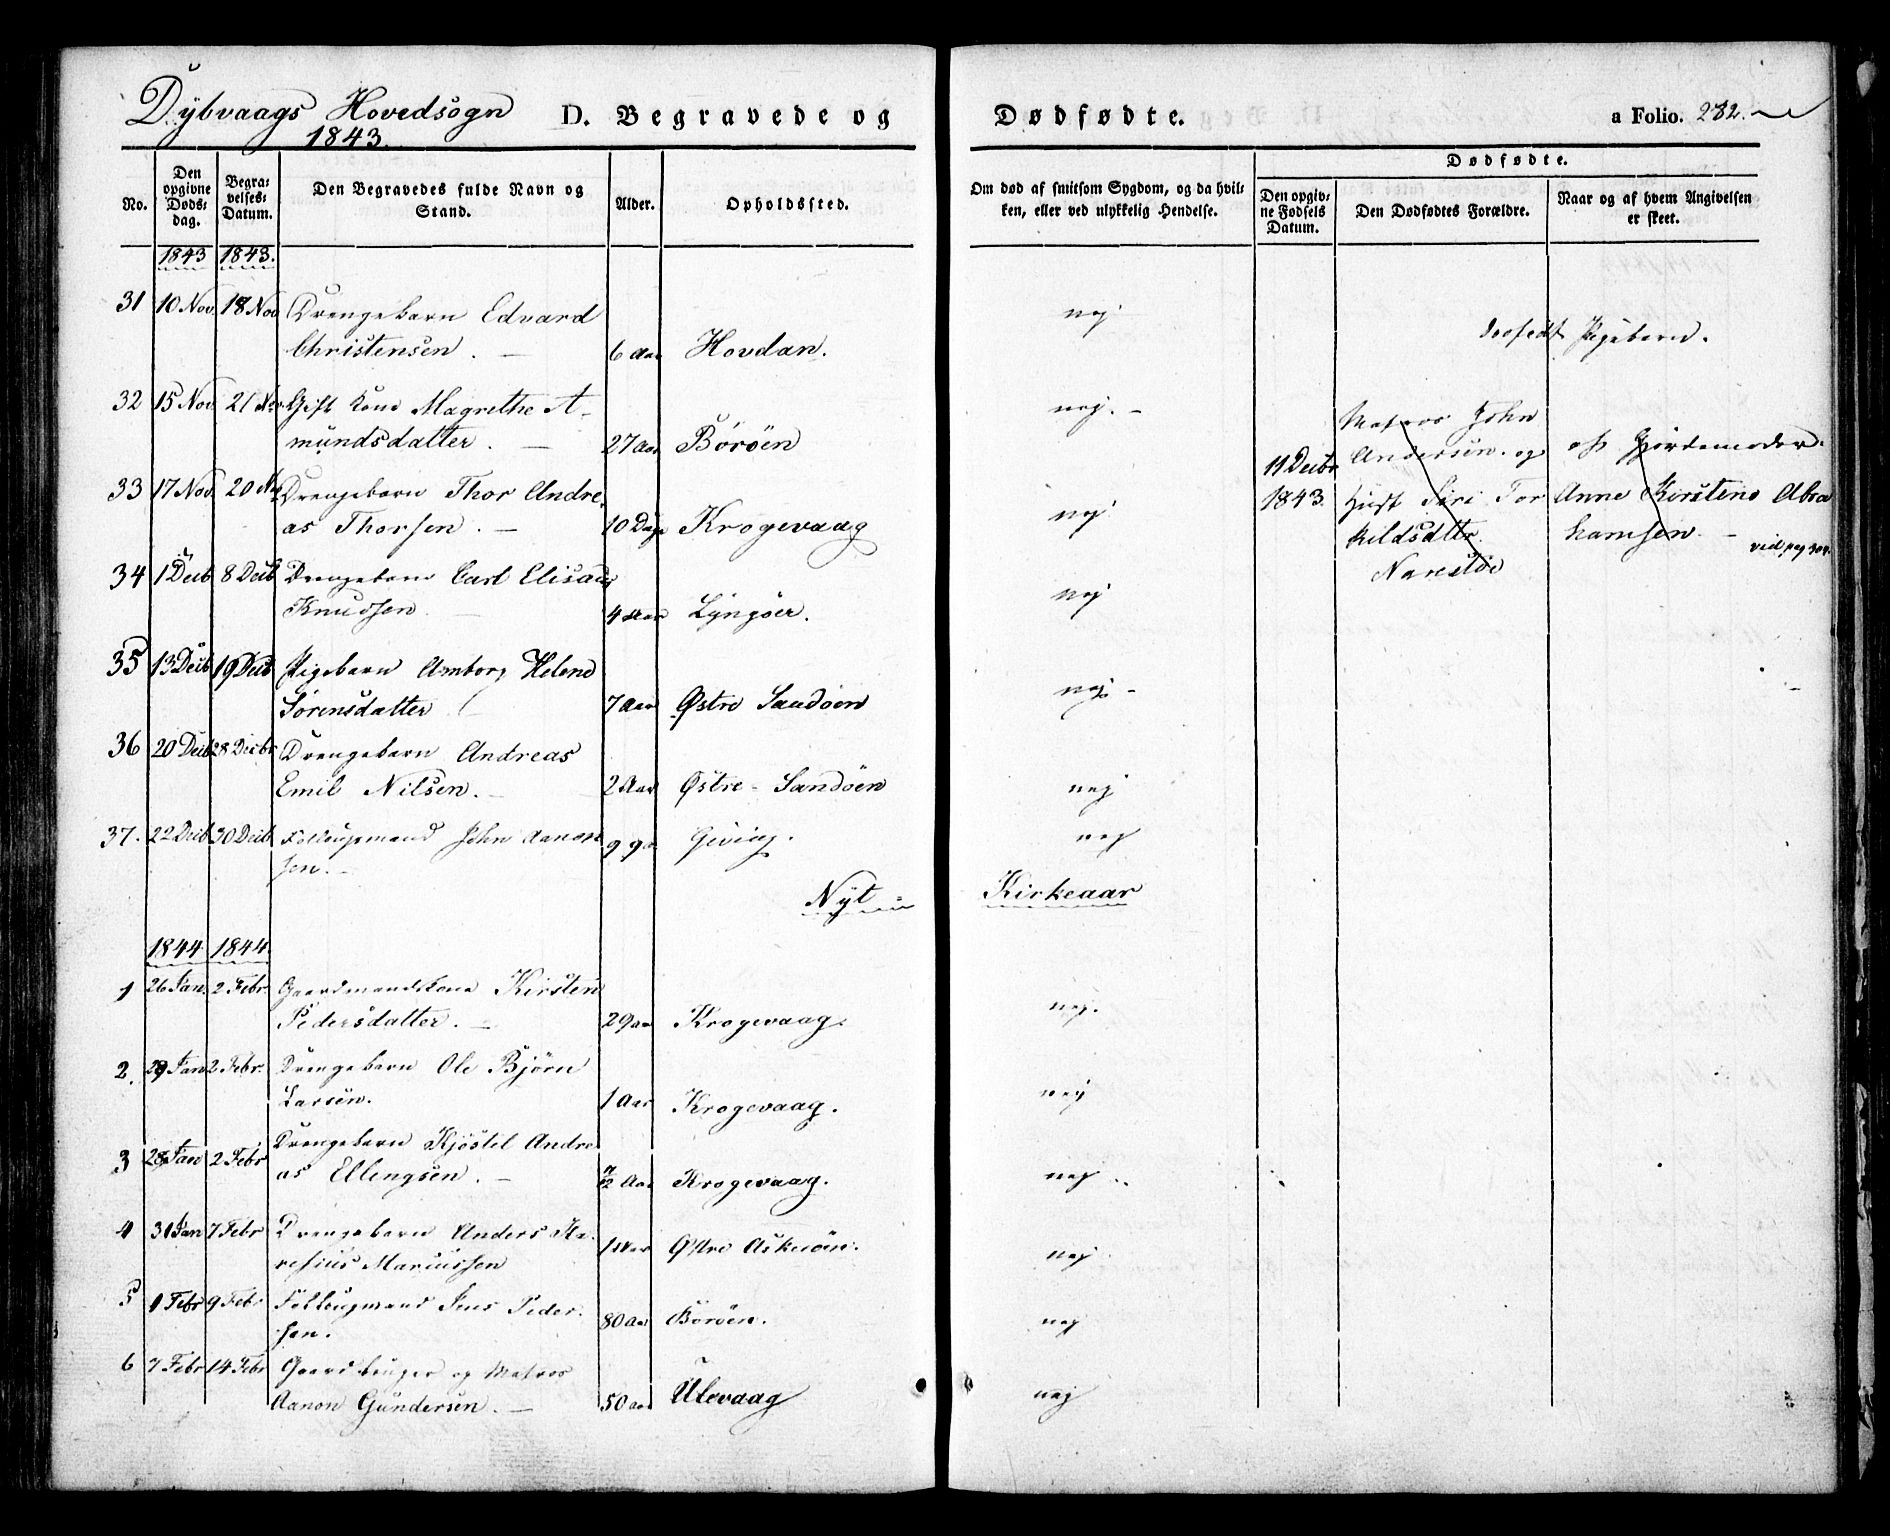 Dybvaags Hovedsogn D. Begravede og Dødfødte. a Folio. 282.
1843.
No. | Den opgivne Døds-dag. | Begra-velses-Datum. | Den Begravedes fulde Navn og Stand. | Alder. | Opholdssted. | Om død af smitsom Sygdom, og da hvil-ken, eller ved ulykkelig Hendelse. | Dødfødte. | Den opgiv-ne Fødsels Datum. | Den Dødfødtes Forældre. | Naar og af hvem Angivelsen er skeet.
1843 1843.
31 10 Nov 18 Nov Drengebarn Edvard nej
Christensen. 6 Aar Hovdan. Pigebarn.
32 15 Nov 21 Nov Gift Kone Magrethe A- nej.- Matros John
mundsdatter. 27 Aar Böröen 11 Decbr Andersen og af Gjordemoder
33 17 Nov 20 Nov Drengebarn Thor Andre- 1843. Siri Tor Anne Kirstine Abra
as Thorsen. 10 Dage Krogevaag nej kildsdttr. hamsen.
34 1 Decb 8 Decb Drengebarn Carl Narestöe
Knudsen 4 Aar Lyngöer. nej
35 13 Decb 19 Decb Pigebarn Amborg Helene
Sörensdatter 7 Aar Østre Sandöen nej-
36 20 Decb 28 Decbr Drengebarn Andreas
Emil Nilsen. 2 Aar Østre-Sandöen nej
37. 22 Decb 30 Decb John Aanon Geving. nej
sen.
Nÿt Kirkeaar
1844 1844.
1 26 Jan. 2 Febr. Gaardmandskone Kirsten nej.
Pedersdatter. 29 aar Krogevaag.
2. 2 Febr. Drengebarn Ole Björn
Larsen. 1 Aar Krogevaag. nej
3 28 Jan 2 Febr Drengebarn Kjöstel Andre
as Ellengsen. Aar Krogevaag. nej
4 31 Jan 7 Febr Drengebarn Anders
Mariussen 1 Aar Østre Askeröen. nej
5 1 Febr 9 Febr Jens Peder-
sen. 80 Aar Börøen. nej
6 7 Febr 14 Febr Gaardbruger og Matros
Aanon Gundersen. 50 aar Ulevaag nej